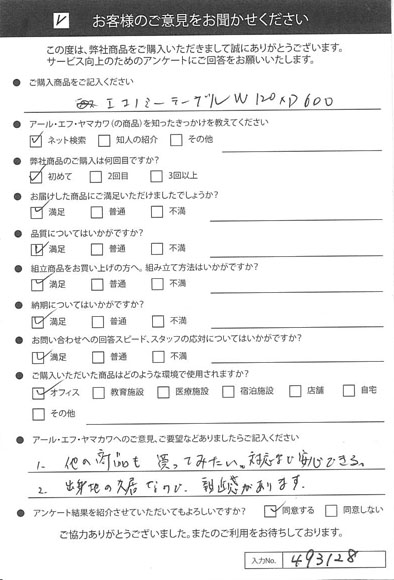 ✓ お客様のご意見をお聞かせください
この度は、弊社商品をご購入いただきまして誠にありがとうございます。
サービス向上のためのアンケートにご回答をお願いいたします。
● ご購入商品をご記入ください
エコノミーテーブル W120×D600
● アール・エフ・ヤマカワ(の商品)を知ったきっかけを教えてください
☑ ネット検索 □ 知人の紹介 □ その他
● 弊社商品のご購入は何回目ですか?
☑ 初めて □ 2回目 □ 3回以上
● お届けした商品にご満足いただけましたでしょうか?
☑ 満足 □ 普通 □ 不満
● 品質についてはいかがですか?
☑ 満足 □ 普通 □ 不満
● 組立商品をお買い上げの方へ。組み立て方法はいかがですか?
☑ 満足 □ 普通 □ 不満
● 納期についてはいかがですか?
☑ 満足 □ 普通 □ 不満
● お問い合わせへの回答スピード、スタッフの応対についてはいかがですか?
☑ 満足 □ 普通 □ 不満
● ご購入いただいた商品はどのような環境で使用されますか?
☑ オフィス □ 教育施設 □ 医療施設 □ 宿泊施設 □ 店舗 □ 自宅
□ その他
● アール・エフ・ヤマカワへのご意見、ご要望などありましたらご記入ください
1. 他の商品も買ってみたい。対応など安心できる。
2. 出身地の なので、親近感があります。
● アンケート結果を紹介させていただいてもよろしいですか? ☑ 同意する □ 同意しない
ご協力ありがとうございました。またのご利用をお待ちしております。
入力No. 493128